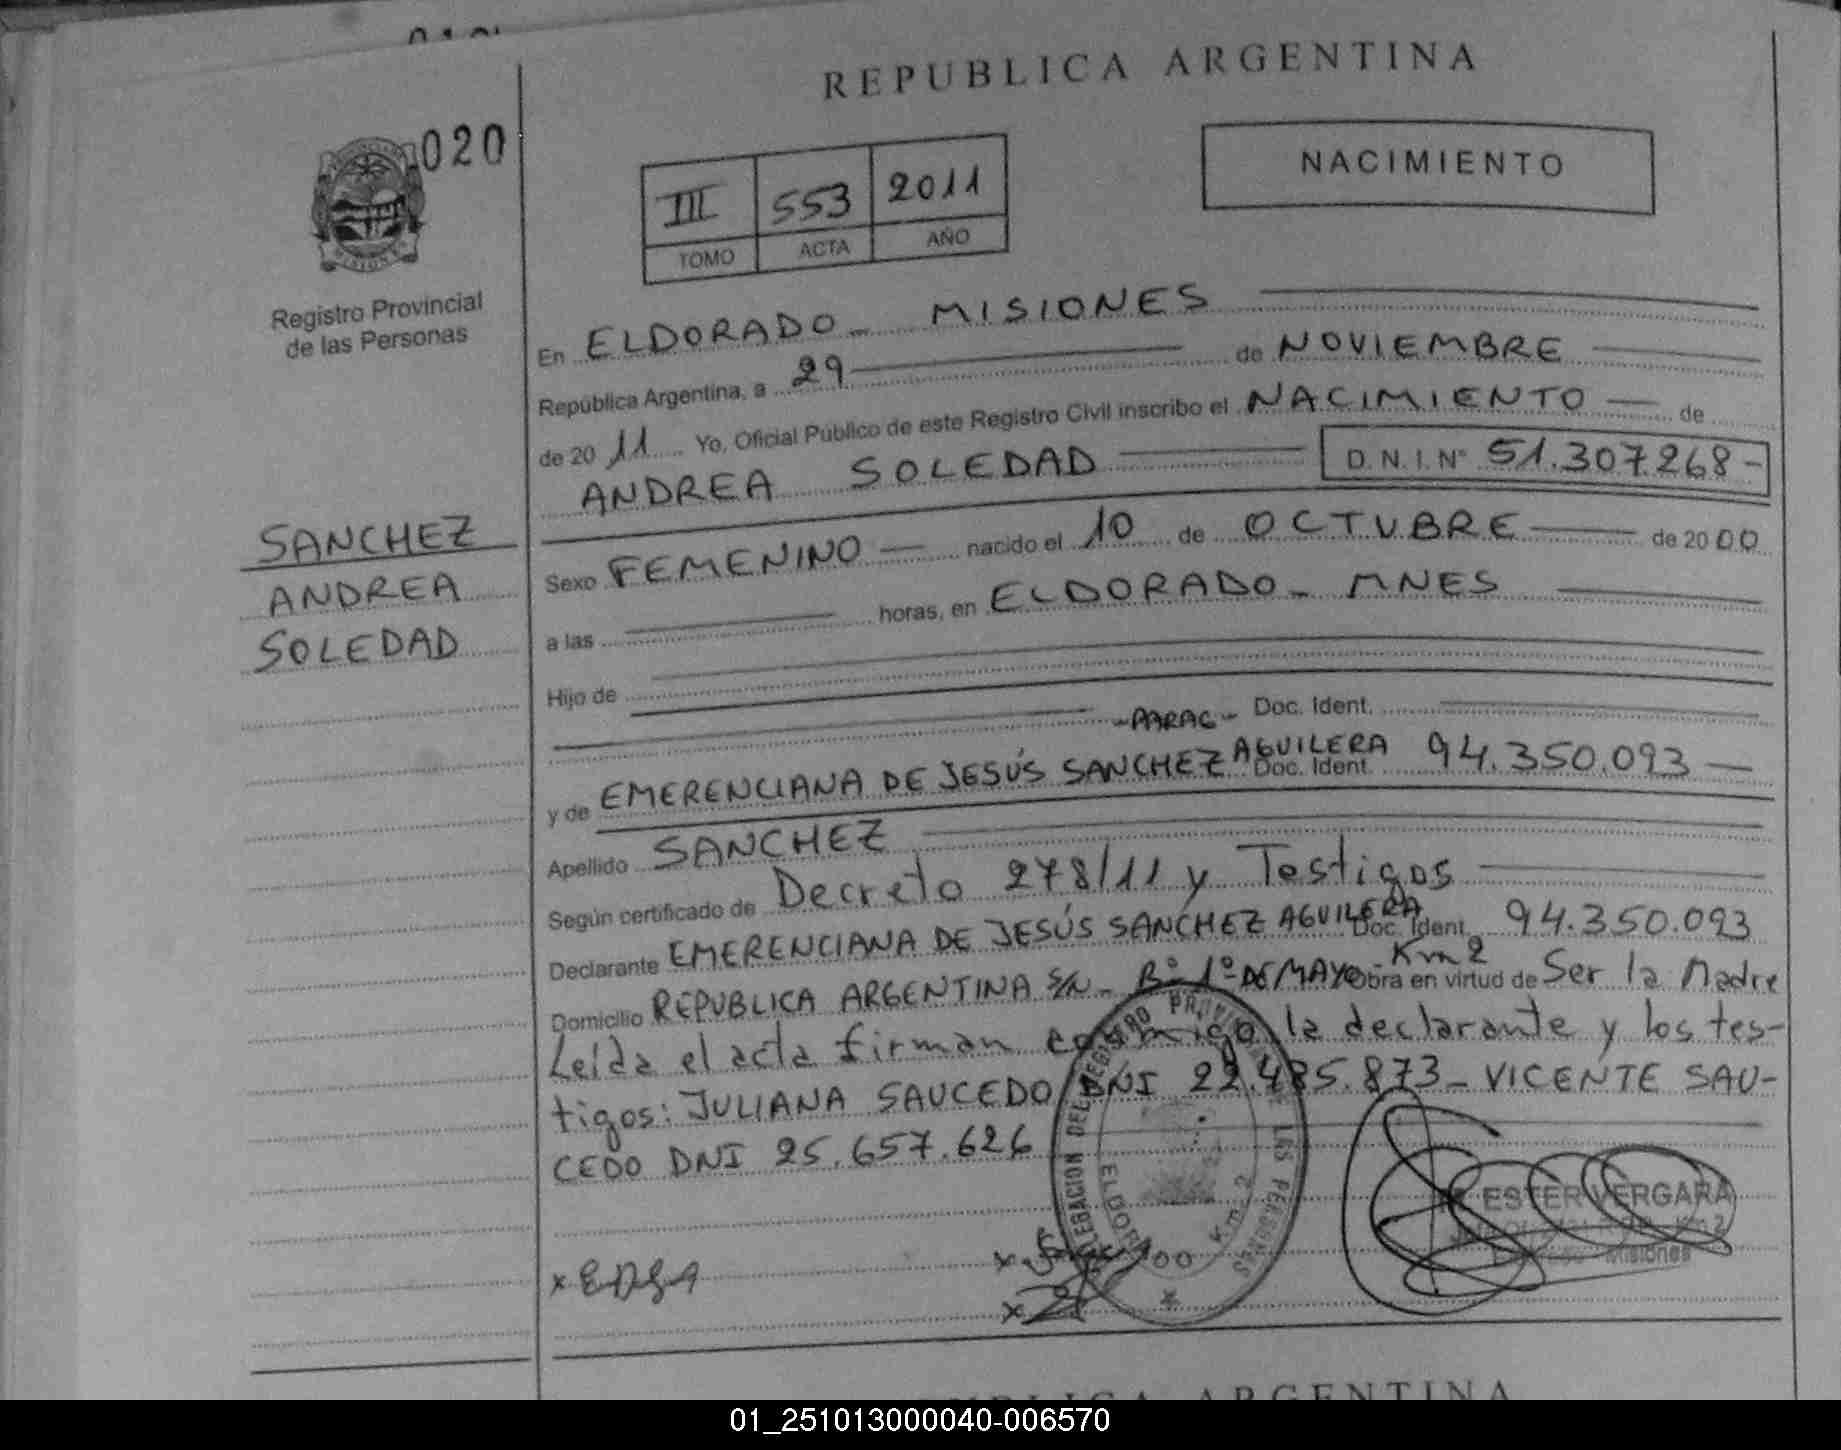 REPUBLICA ARGENTINA
020
NACIMIENTO
III 553 2011
TOMO ACTA AÑO
Registro Provincial
de las Personas
En ELDORADO - MISIONES
República Argentina, a 29 de NOVIEMBRE
de 2011 Yo, Oficial Público de este Registro Civil inscribo el NACIMIENTO de
ANDREA SOLEDAD D.N.I. Nº 51.307.268-
SANCHEZ
ANDREA
SOLEDAD
Sexo FEMENINO nacido el 10 de OCTUBRE de 2000
a las horas, en ELDORADO - MNES
Hijo de
Doc. Ident.
y de EMERENCIANA DE JESÚS SANCHEZ AGUILERA Doc. Ident. 94.350.093
Apellido SANCHEZ
Según certificado de Decreto 278/11 y Testigos
Declarante EMERENCIANA DE JESÚS SANCHEZ AGUILERA Doc. Ident. 94.350.093
Domicilio REPUBLICA ARGENTINA S/N - Bº 1º DE MAYO - Km 2 obra en virtud de Ser la Madre
Leída el acta firman conmigo la declarante y los tes-
tigos: JULIANA SAUCEDO DNI 22.485.873 - VICENTE SAU-
CEDO DNI 25.657.626
DELEGACION DEL REGISTRO PROVINCIAL DE LAS PERSONAS
ELDORADO Km. 2
ESTER VERGARA
Misiones
REPUBLICA ARGENTINA
01_251013000040-006570